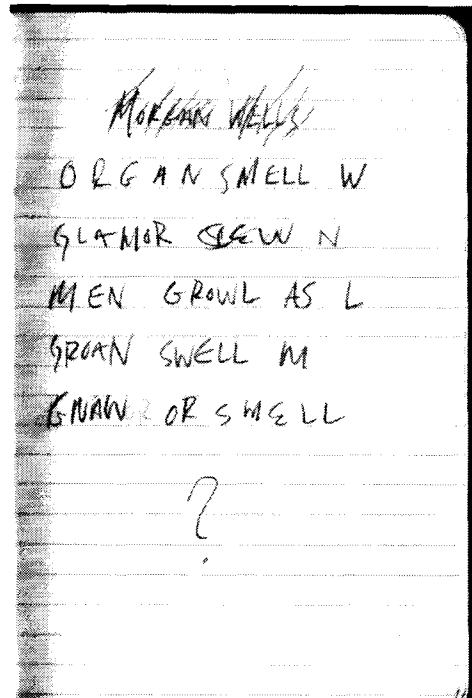 MORGAN WELLS
ORGAN SMELL W
GLAMOR SLEW N
MEN GROWL AS L
GROAN SWELL M
GNAW OR SMELL
?